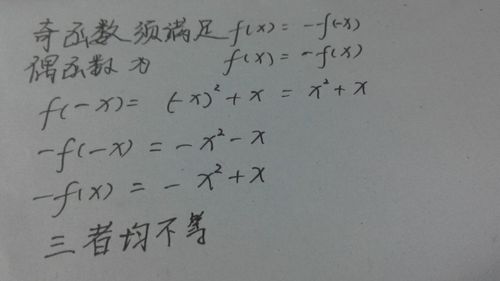 奇函数须满足f(x)= -f(-x)
偶函数为 f(x)= -f(x)
f(-x)= (-x)²+x = x²+x
-f(-x) = -x²-x
-f(x) = - x²+x
三者均不等